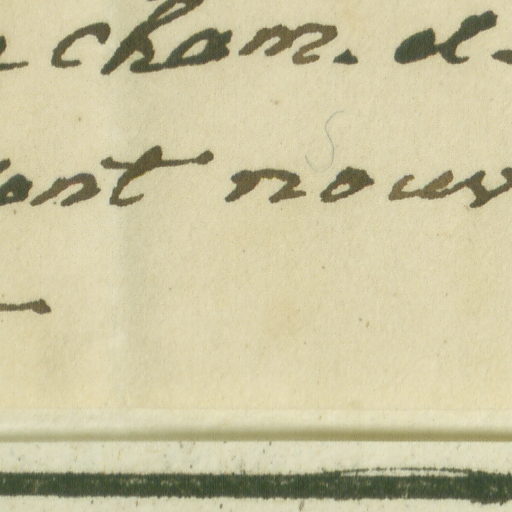 cham. d
ont nouv